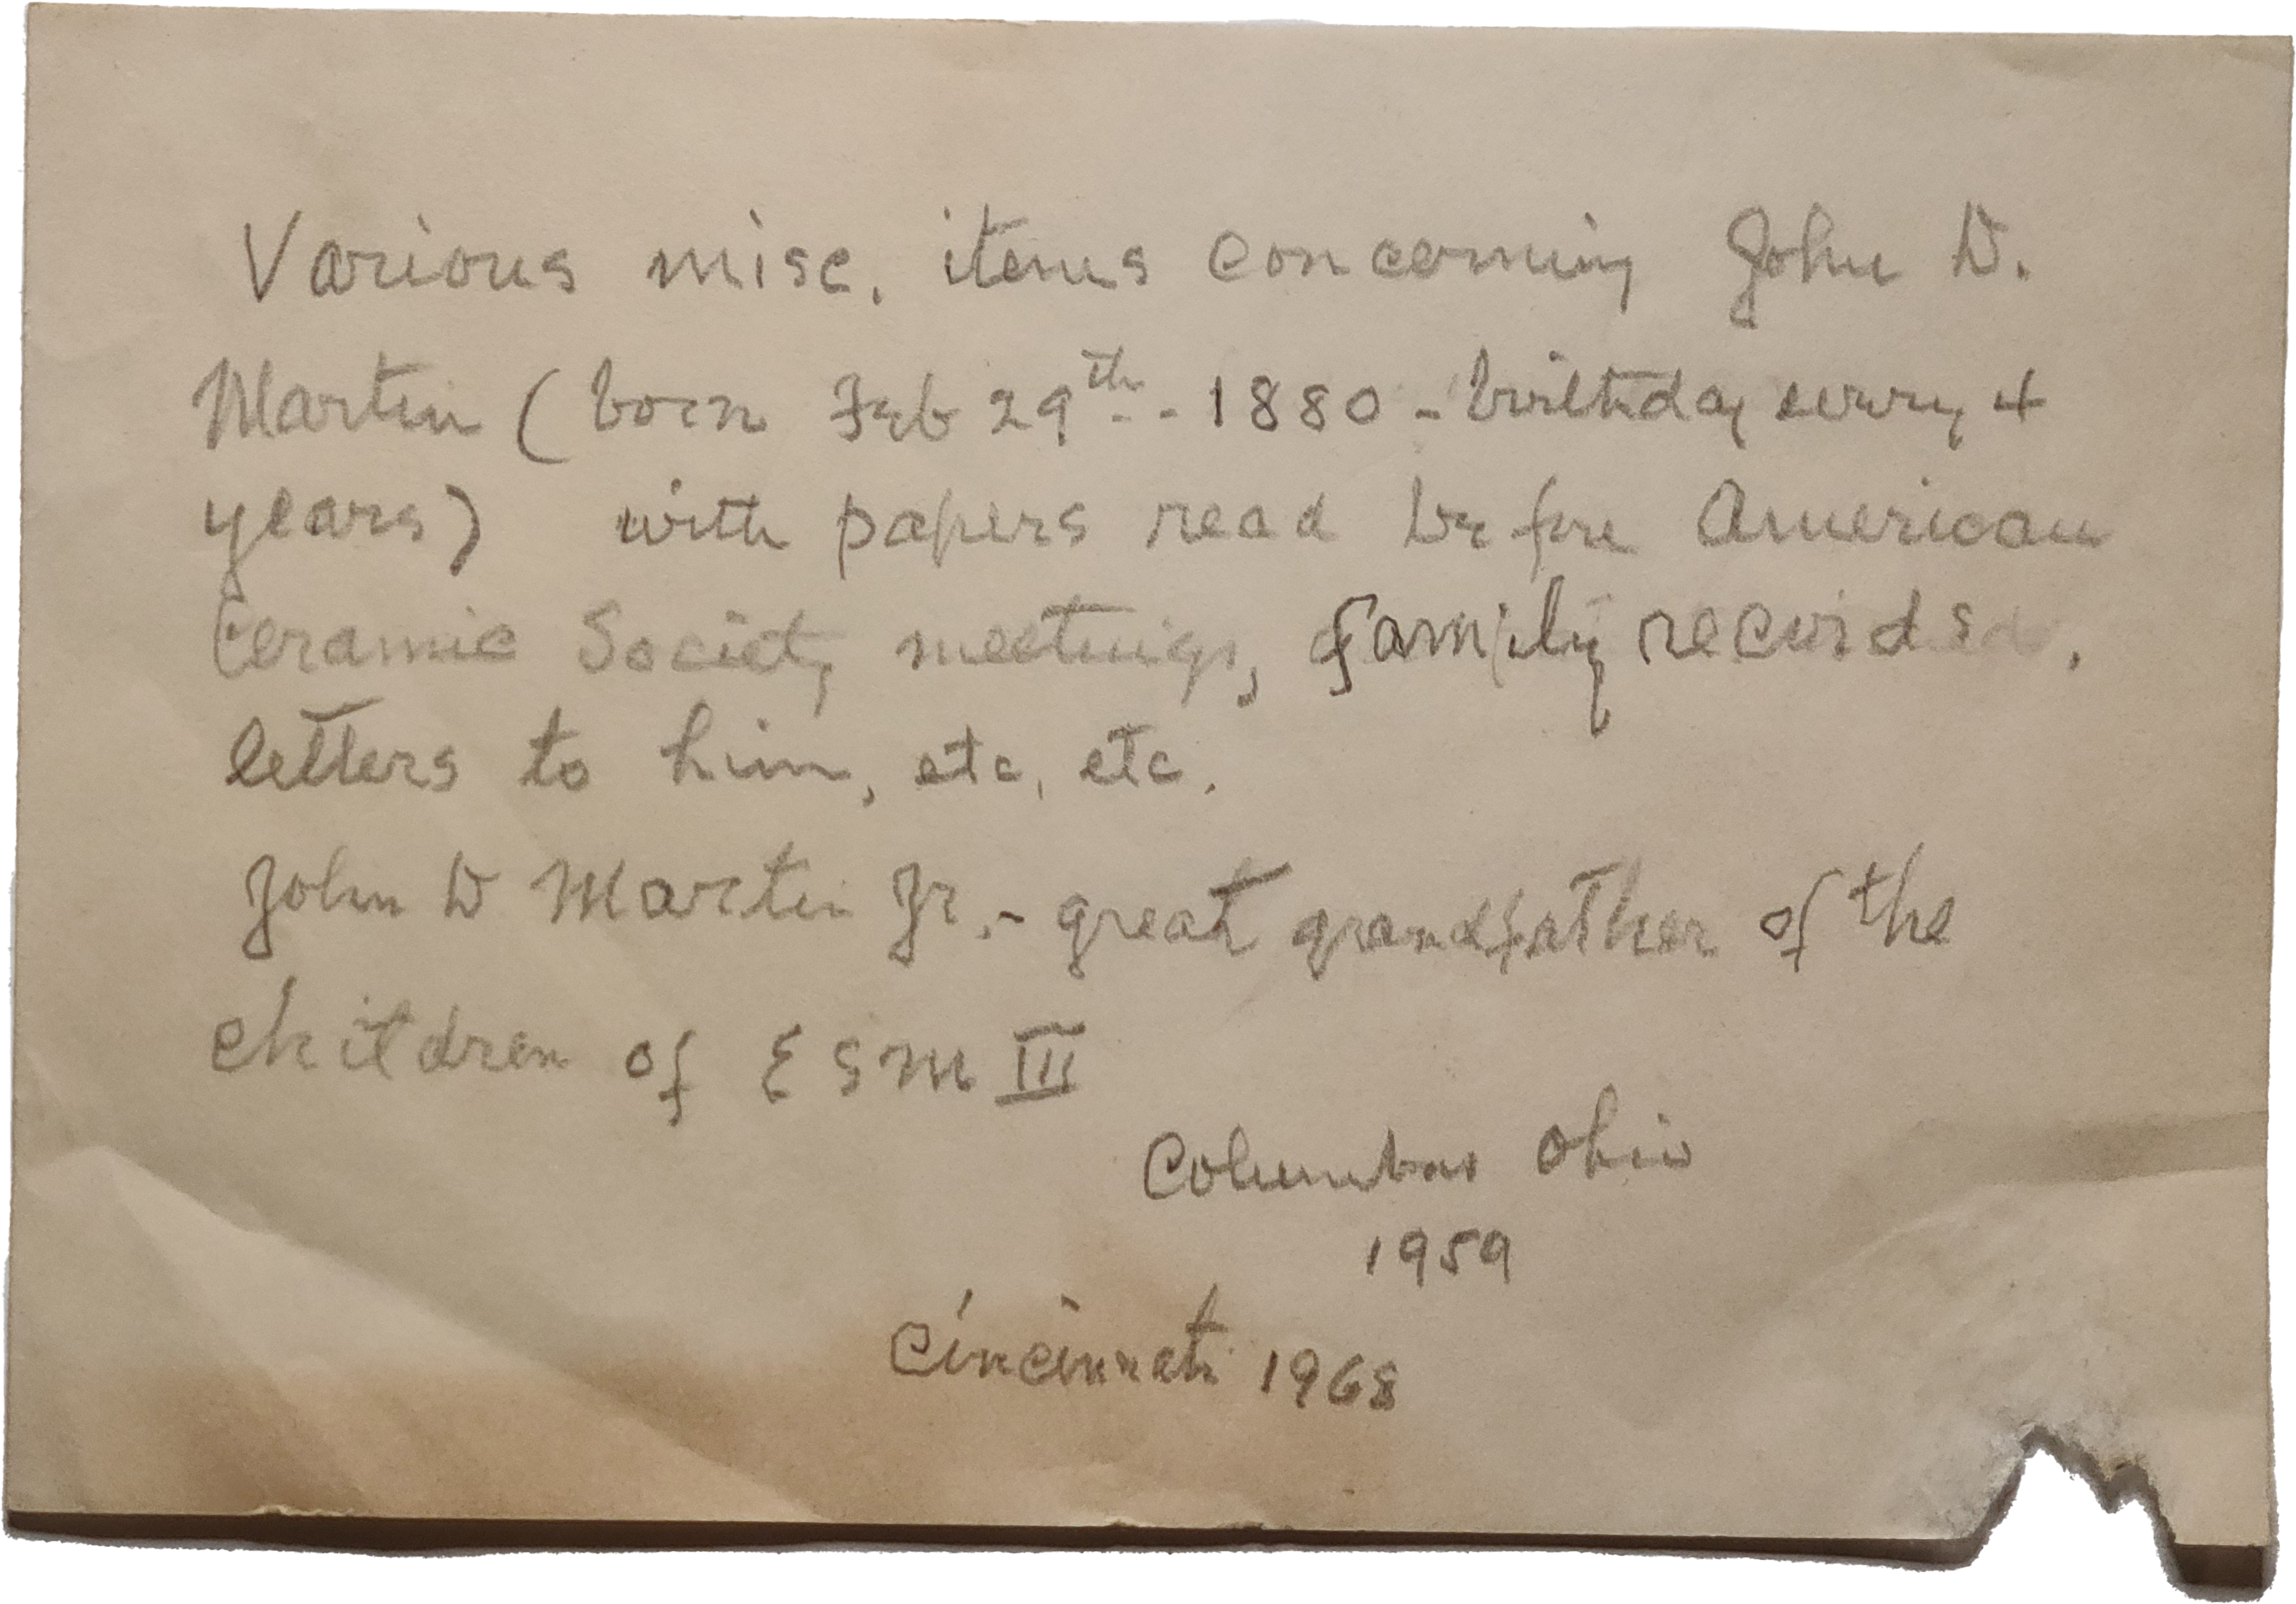 Various misc. items concerning John D.
Martin (born Feb 29th - 1880 - birthday every 4
years) with papers read before American
Ceramic Society meetings, family records,
letters to him, etc, etc.
John D Martin Jr. - great grandfather of the
children of ESM III
Columbus Ohio
1959
Cincinnati 1968